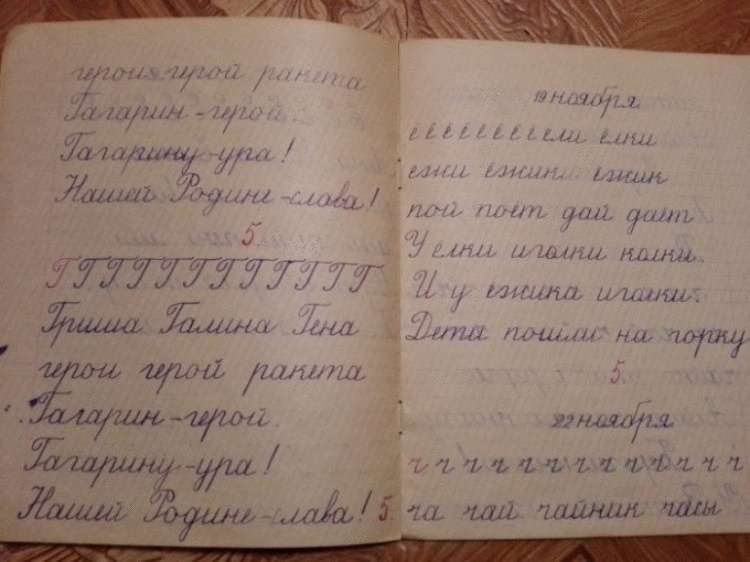 герои герой ракета
Гагарин-герой.
Гагарину-ура!
Нашей Родине-слава!
5.
Г Г Г Г Г Г Г Г Г Г Г Г
Гриша Галина Гена
герои герой ракета
Гагарин-герой.
Гагарину-ура!
Нашей Родине-слава! 5.
19 ноября
ё ё ё ё ё ё ё ё ели ёлки
ежи ёжики ёжик
пой поёт дай даёт
У ёлки иголки колки.
И у ёжика иголки.
Дети пошли на горку
5.
22 ноября
ч ч ч ч ч ч ч ч ч ч ч ч ч
ча чай чайник часы